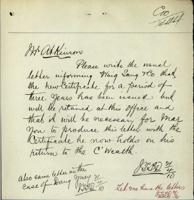 Mr Atkinson
Please write the usual
letter informing
that
the new Certificate for a period of
three years has been issued but
will be retained at this office and
that it will be necessary, for
You to produce this letter with the
Certificate he now holds on
his return to the C'Wealth.
also same letter in the
case of
Let me have the letters